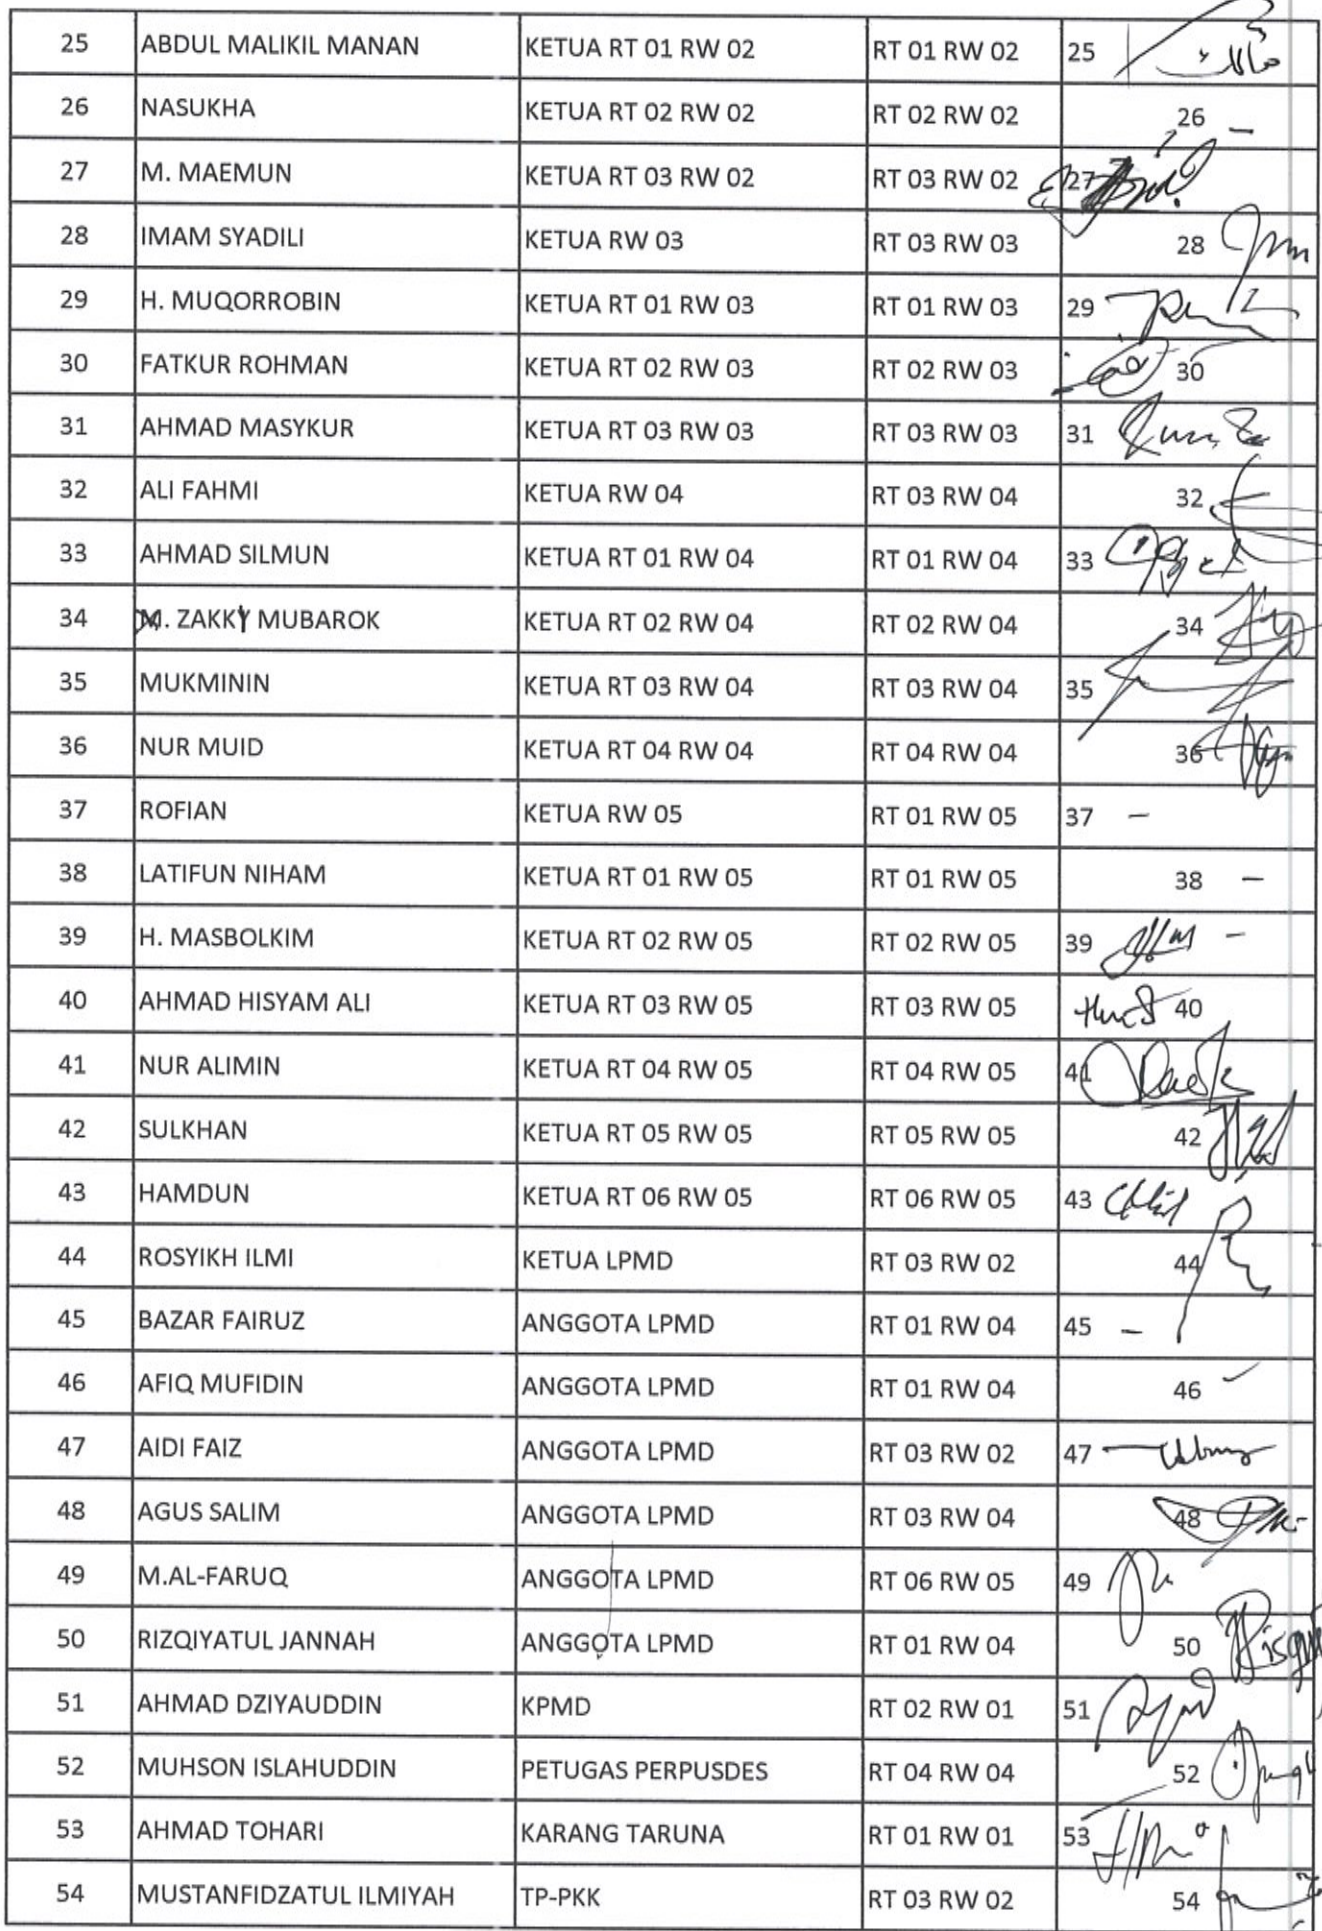 25 ABDUL MALIKIL MANAN KETUA RT 01 RW 02 RT 01 RW 02 25
26 NASUKHA KETUA RT 02 RW 02 RT 02 RW 02 26 –
27 M. MAEMUN KETUA RT 03 RW 02 RT 03 RW 02 27
28 IMAM SYADILI KETUA RW 03 RT 03 RW 03 28
29 H. MUQORROBIN KETUA RT 01 RW 03 RT 01 RW 03 29
30 FATKUR ROHMAN KETUA RT 02 RW 03 RT 02 RW 03 30
31 AHMAD MASYKUR KETUA RT 03 RW 03 RT 03 RW 03 31
32 ALI FAHMI KETUA RW 04 RT 03 RW 04 32
33 AHMAD SILMUN KETUA RT 01 RW 04 RT 01 RW 04 33
34 M. ZAKKY MUBAROK KETUA RT 02 RW 04 RT 02 RW 04 34
35 MUKMININ KETUA RT 03 RW 04 RT 03 RW 04 35
36 NUR MUID KETUA RT 04 RW 04 RT 04 RW 04 36
37 ROFIAN KETUA RW 05 RT 01 RW 05 37 –
38 LATIFUN NIHAM KETUA RT 01 RW 05 RT 01 RW 05 38 –
39 H. MASBOLKIM KETUA RT 02 RW 05 RT 02 RW 05 39 –
40 AHMAD HISYAM ALI KETUA RT 03 RW 05 RT 03 RW 05 40
41 NUR ALIMIN KETUA RT 04 RW 05 RT 04 RW 05 41
42 SULKHAN KETUA RT 05 RW 05 RT 05 RW 05 42
43 HAMDUN KETUA RT 06 RW 05 RT 06 RW 05 43
44 ROSYIKH ILMI KETUA LPMD RT 03 RW 02 44
45 BAZAR FAIRUZ ANGGOTA LPMD RT 01 RW 04 45 –
46 AFIQ MUFIDIN ANGGOTA LPMD RT 01 RW 04 46
47 AIDI FAIZ ANGGOTA LPMD RT 03 RW 02 47
48 AGUS SALIM ANGGOTA LPMD RT 03 RW 04 48
49 M.AL-FARUQ ANGGOTA LPMD RT 06 RW 05 49
50 RIZQIYATUL JANNAH ANGGOTA LPMD RT 01 RW 04 50
51 AHMAD DZIYAUDDIN KPMD RT 02 RW 01 51
52 MUHSON ISLAHUDDIN PETUGAS PERPUSDES RT 04 RW 04 52
53 AHMAD TOHARI KARANG TARUNA RT 01 RW 01 53
54 MUSTANFIDZATUL ILMIYAH TP-PKK RT 03 RW 02 54